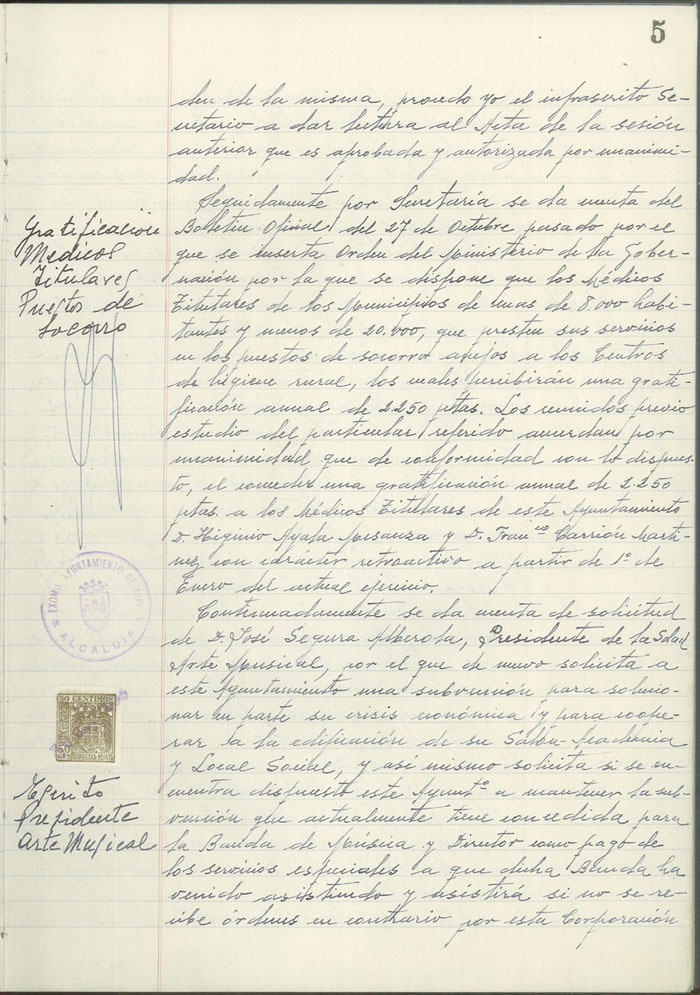 5
den de la misma, procedo yo el infrascrito Se-
cretario a dar lectura al Acta de la sesión
anterior que es aprobada y autorizada por unanimi-
dad.
Seguidamente por Secretaría se da cuenta del
Boletin Oficial del 27 de Octubre pasado por el
que se inserta Orden del Ministerio de la Gober-
nación por la que se dispone que los Médicos
Titulares de los Municipios de mas de 8.000 habi-
tantes y menos de 20.000, que presten sus servicios
en los puestos de socorro anejos a los Centros
de higiene rural, los cuales percibirán una grati-
ficación anual de 2.250 ptas. Los reunidos previo
estudio del particular referido acuerdan por
unanimidad que de conformidad con lo dispues-
to, el conceder una gratificación anual de 2.250
ptas. a los Médicos Titulares de este Ayuntamiento
D. Higinio Ayala Mesanza y D. Franco Carrión Marti-
nez con carácter retroactivo a partir de 1º de
Enero del actual ejercicio.
Continuadamente se da cuenta de solicitud
de D. José Segura Alberola, Presidente de la Sdad
Arte Musical, por el que de nuevo solicita a
este Ayuntamiento una subvención para solucio-
nar en parte su crisis económica y para coope-
rar a la edificación de su Salón-Academia
y Local Social, y así mismo solicita si se en-
cuentra dispuesto este Ayuntº a mantener la sub-
vención que actualmente tiene concedida para
la Banda de Música y Director como pago de
los servicios especiales a que dicha Banda ha
venido asistiendo y asistirá si no se re-
cibe órdenes en contrario por esta Corporación
Gratificación
Medicos
Titulares
Puestos de
Socorro
EXCMO. AYUNTAMIENTO DE
ALCALDIA
50 CENTIMOS
Escrito
Presidente
Arte Musical